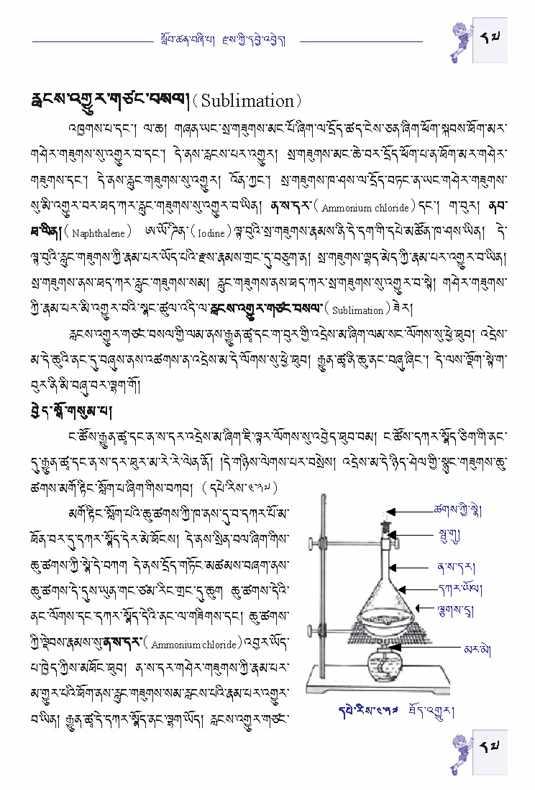 སློབ་ཚན་བཞི་པ། རྫས་ཀྱི་དབྱེ་འབྱེད།
༤༥
རླངས་འགྱུར་གཙང་བསལ།(Sublimation)
འཁྱགས་པ་དང་། ལ་ཆ། གཞན་ཡང་སྲ་གཟུགས་མང་པོ་ཞིག་ལ་དྲོད་ཚད་ངེས་ཅན་ཞིག་ཕོག་སྐབས་ཐོག་མར་
གཤེར་གཟུགས་སུ་འགྱུར་བ་དང་། དེ་ནས་རླངས་པར་འགྱུར། སྲ་གཟུགས་མང་ཆེ་བར་དྲོད་ཕོག་པ་ན་ཐོག་མར་གཤེར་
གཟུགས་དང་། དེ་ནས་རླུང་གཟུགས་སུ་འགྱུར། འོན་ཀྱང་། སྲ་གཟུགས་ཁ་ཤས་ལ་དྲོད་བཏང་ན་ཡང་གཤེར་གཟུགས་
སུ་མི་འགྱུར་བར་ཐད་ཀར་རླུང་གཟུགས་སུ་འགྱུར་བ་ཡིན། ན་ས་དར་(Ammonium chloride)དང་། ག་བུར། ནབ་
ཐ་ལིན།(Naphthalene) ཨ་ཡོ་ཌིན་(Iodine)ལྟ་བུའི་སྲ་གཟུགས་རྣམས་ནི་དེ་དག་གི་དཔེ་མཚོན་ཁ་ཤས་ཡིན། དེ་
ལྟ་བུའི་རླུང་གཟུགས་ཀྱི་རྣམ་པར་ཡོད་པའི་རྫས་རྣམས་གྲང་དུ་བཅུག་ན། སྲ་གཟུགས་ལྷད་མེད་ཀྱི་རྣམ་པར་འགྱུར་བ་ཡིན།
སྲ་གཟུགས་ནས་ཐད་ཀར་རླུང་གཟུགས་སམ། རླུང་གཟུགས་ནས་ཐད་ཀར་སྲ་གཟུགས་སུ་འགྱུར་བ་སྟེ། གཤེར་གཟུགས་
ཀྱི་རྣམ་པར་མི་འགྱུར་བའི་སྣང་ཚུལ་འདི་ལ་རླངས་འགྱུར་གཙང་བསལ་(Sublimation)ཟེར།
རླངས་འགྱུར་གཙང་བསལ་གྱི་ལམ་ནས་རྒྱུན་ཚྭ་དང་ག་བུར་གྱི་འདྲེས་མ་ཞིག་ལམ་སང་ལོགས་སུ་ཕྱེ་ཐུབ། འདྲེས་
མ་དེ་ཆུའི་ནང་དུ་བཞུས་ནས་འཚགས་ན་འདྲེས་མ་དེ་ལོགས་སུ་ཕྱེ་ཐུབ། རྒྱུན་ཚྭ་ནི་ཆུ་ནང་བཞུ་ཞིང་། དེ་ལས་ལྡོག་སྟེ་ག་
བུར་ནི་མི་བཞུ་བར་ལྷག་གོ།
བྱེད་སྒོ་གསུམ་པ།
ང་ཚོས་རྒྱུན་ཚྭ་དང་ན་ས་དར་འདྲེས་མ་ཞིག་ཇི་ལྟར་ལོགས་སུ་འབྱེད་ཐུབ་བམ། ང་ཚོས་དཀར་སྣོད་ཅིག་གི་ནང་
དུ་རྒྱུན་ཚྭ་དང་ན་ས་དར་ཐུར་མ་རེ་རེ་ལེན་ནོ། །དེ་གཉིས་ལེགས་པར་བསྲེས། འདྲེས་མ་དེ་ཉིད་ཤེལ་གྱི་སྙུང་གཟུགས་ཆུ་
ཚགས་མགོ་རྟིང་སློག་པ་ཞིག་གིས་བཀབ། (དཔེ་རིས་༤་༡༧)
མགོ་རྟིང་སློག་པའི་ཆུ་ཚགས་ཀྱི་ཁ་ནས་དུ་བ་དཀར་པོ་མ་
ཐོན་བར་དུ་དཀར་སྣོད་དེར་མེ་ཐོངས། དེ་ནས་སྲིན་བལ་ཞིག་གིས་
ཆུ་ཚགས་ཀྱི་སྣེ་དེ་བཀག དེ་ནས་དྲོད་གཏོང་མཚམས་བཞག་ནས་
ཆུ་ཚགས་དེ་དུས་ཡུན་གང་ཙམ་རིང་གྲང་དུ་ཆུག ཆུ་ཚགས་དེའི་
ནང་ལོགས་དང་དཀར་སྣོད་དེའི་ནང་ལ་གཟིགས་དང་། ཆུ་ཚགས་
ཀྱི་ལྡེབས་རྣམས་སུ་ན་ས་དར་(Ammonium chloride)འབྱར་ཡོད་
པ་ཁྱེད་ཀྱིས་མཐོང་ཐུབ། ན་ས་དར་གཤེར་གཟུགས་ཀྱི་རྣམ་པར་
མ་གྱུར་པའི་ཐོག་ནས་རླུང་གཟུགས་སམ་རླངས་པའི་རྣམ་པར་འགྱུར་
བ་ཡིན། རྒྱུན་ཚྭ་དེ་དཀར་སྣོད་ནང་ལྷག་ཡོད། རླངས་འགྱུར་གཙང་
ཚགས་ཀྱི་སྣེ།
སྦུ་གུ།
ན་ས་དར།
དཀར་ཡོལ།
ལྕགས་དྲ།
མར་མེ།
དཔེ་རིས་༤་༡༧ ཐོད་འགྱུར།
༤༥